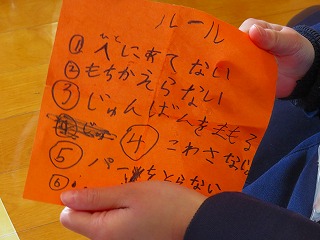 ルール
① 人にすてない
② もちかえらない
③ じゅんばんをまもる
④ こわさない
⑤ とらない
⑥